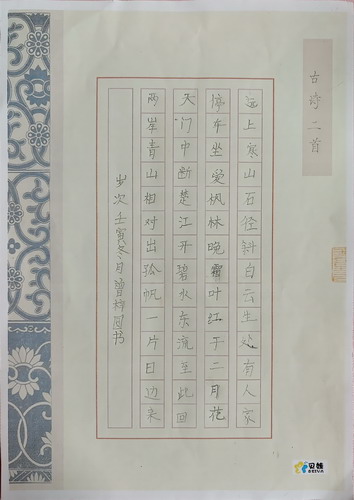 古诗二首
远上寒山石径斜白云生处有人家
停车坐爱枫林晚霜叶红于二月花
天门中断楚江开碧水东流至此回
两岸青山相对出孤帆一片日边来
岁次壬寅冬月曾梅圆书
贝娃
BEIVA